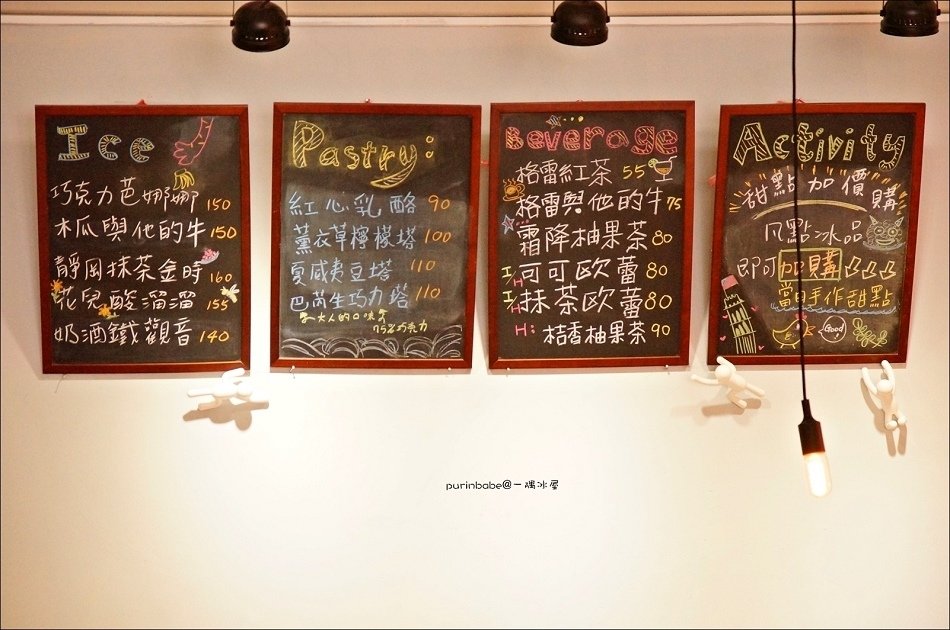 Ice
巧克力芭娜娜 150
木瓜與他的牛 150
靜岡抹茶金時 160
花兒酸溜溜 155
奶酒鐵觀音 140
Pastry:
紅心乳酪 90
薰衣草檸檬塔 100
夏威夷豆塔 110
巴芮生巧力塔 110
大人的口味
75%巧克力
Beverage
格雷紅茶 55
格雷與他的牛 75
霜降柚果茶 80
I/H 可可歐蕾 80
I/H 抹茶歐蕾 80
H: 桔香柚果茶 90
Activity
甜點加價購
凡點冰品
即可加購
當日手作甜點
Good
purinbabe@一隅冰屋